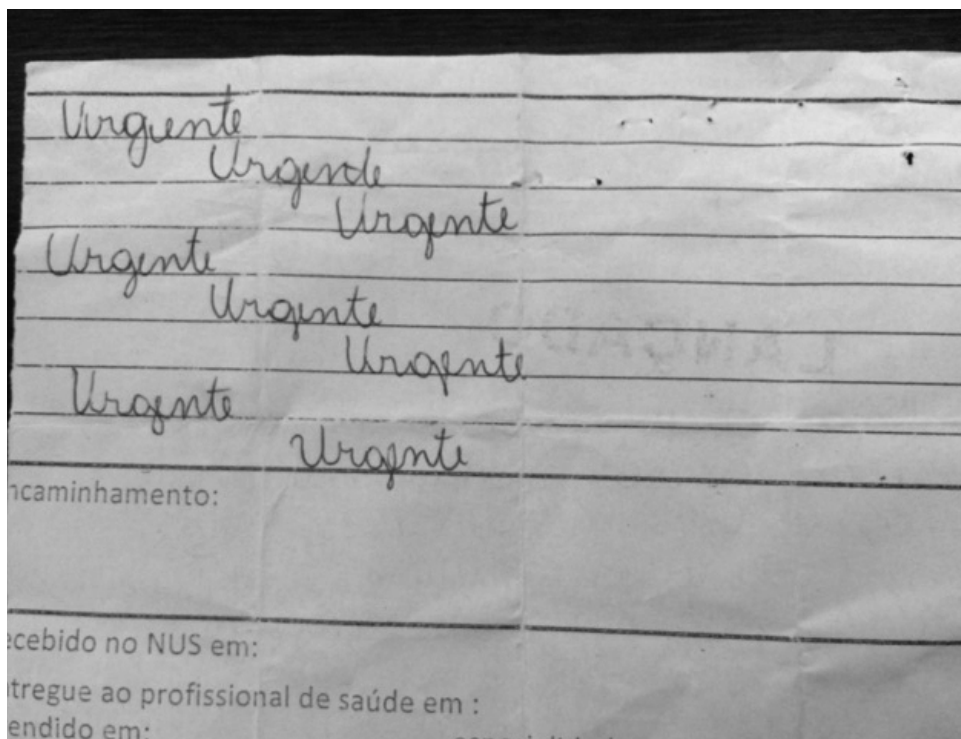 Urgente
Urgende
Urgente
Urgente
Urgente
Urgente
Urgente
Urgente
ncaminhamento:
ecebido no NUS em:
ntregue ao profissional de saúde em :
endido em: